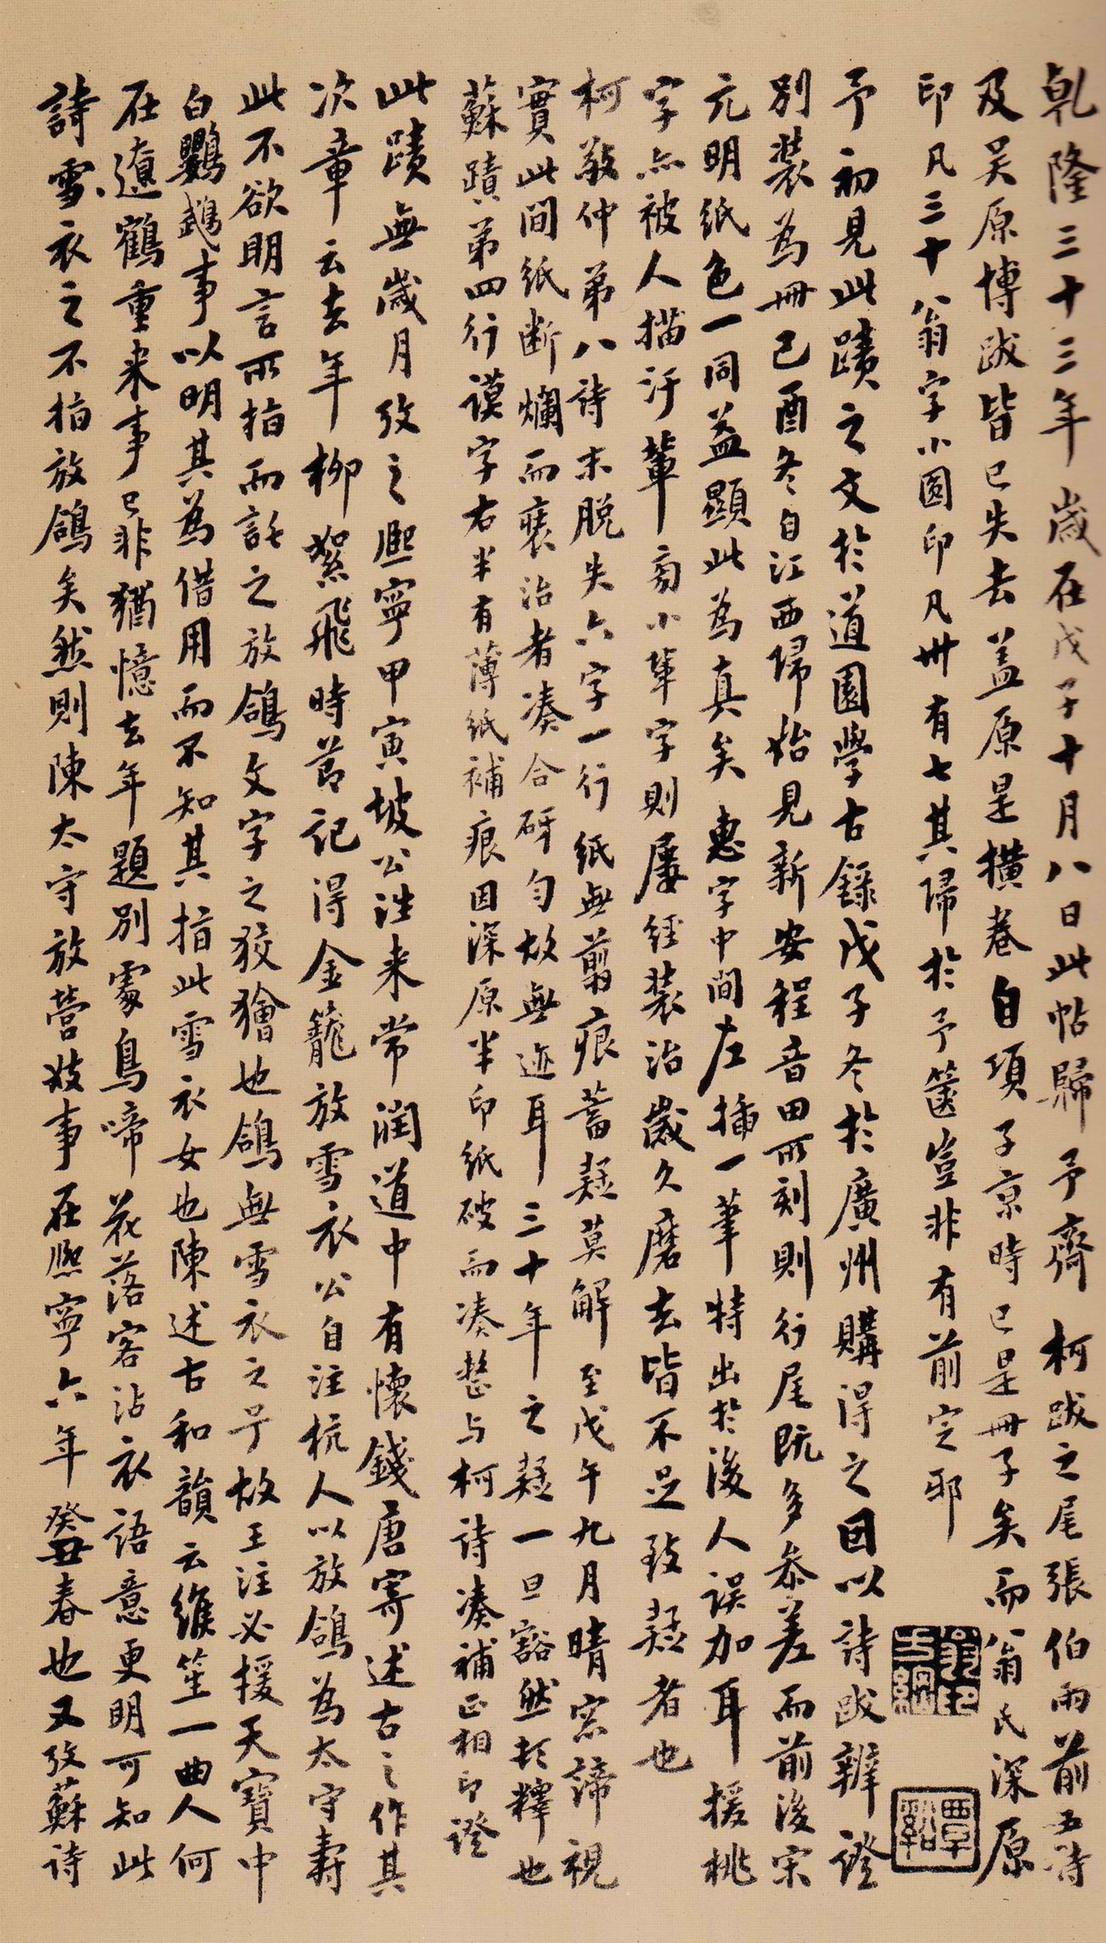 乹隆三十三年歲在戊子十月八日此帖歸予齋柯跋之尾張伯雨前五詩
及吴原博跋皆已失去盖原是橫卷自項子京時已是冊子矣而翁氏深原
印凡三十翁字小圓印凡卅有七其歸於予篋豈非有前定耶
予初見此蹟之文於道園學古錄戊子冬於廣州購得之因以詩跋辨證
別裝為冊己酉冬自江西歸始見新安程音田所刻則行尾既多叅差而前後宋
元明紙色一同益顯此為真矣惠字中間左揷一筆特出於後人误加耳援桃
字亦被人描汙輩旁小軰字則屢經裝治歲久磨去皆不足致疑者也
柯敬仲弟八詩末脱失六字一行紙無翦痕蓄疑莫解至戊午九月晴窓諦視
實此間紙断爛而裒治者凑合砑匀故無迹耳三十年之疑一旦豁然冰釋也
蘇蹟第四行謨字右半有薄紙補痕因深原半印紙破而凑整与柯詩凑補正相印證
此蹟無歲月攷之熙寧甲寅坡公往来常潤道中有懷錢唐寄述古之作其
次章云去年柳絮飛時莭記得金籠放雪衣公自注杭人以放鴿為太守壽
此不欲明言所指而託之放鴿文字之狡獪也鴿無雪衣之号故王注必援天寶中
白鸚鵡事以明其為借用而不知其指此雪衣女也陳述古和韻云緱笙一曲人何
在遼鶴重来事已非猶憶去年題別處鳥啼花落客沾衣語意更明可知此
詩雪衣之不指放鴿矣然則陳太守放營妓事在熙寧六年癸丑春也又攷蘇诗
翁方綱印
覃谿